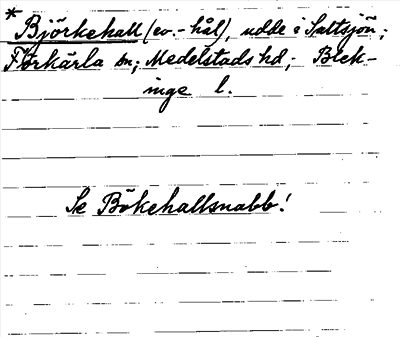 * Björkehall (ev. -hål), udde i Saltsjön;
Förkärla sn; Medelstads hd; Blek-
inge l.
Se Bökehallsnabb!